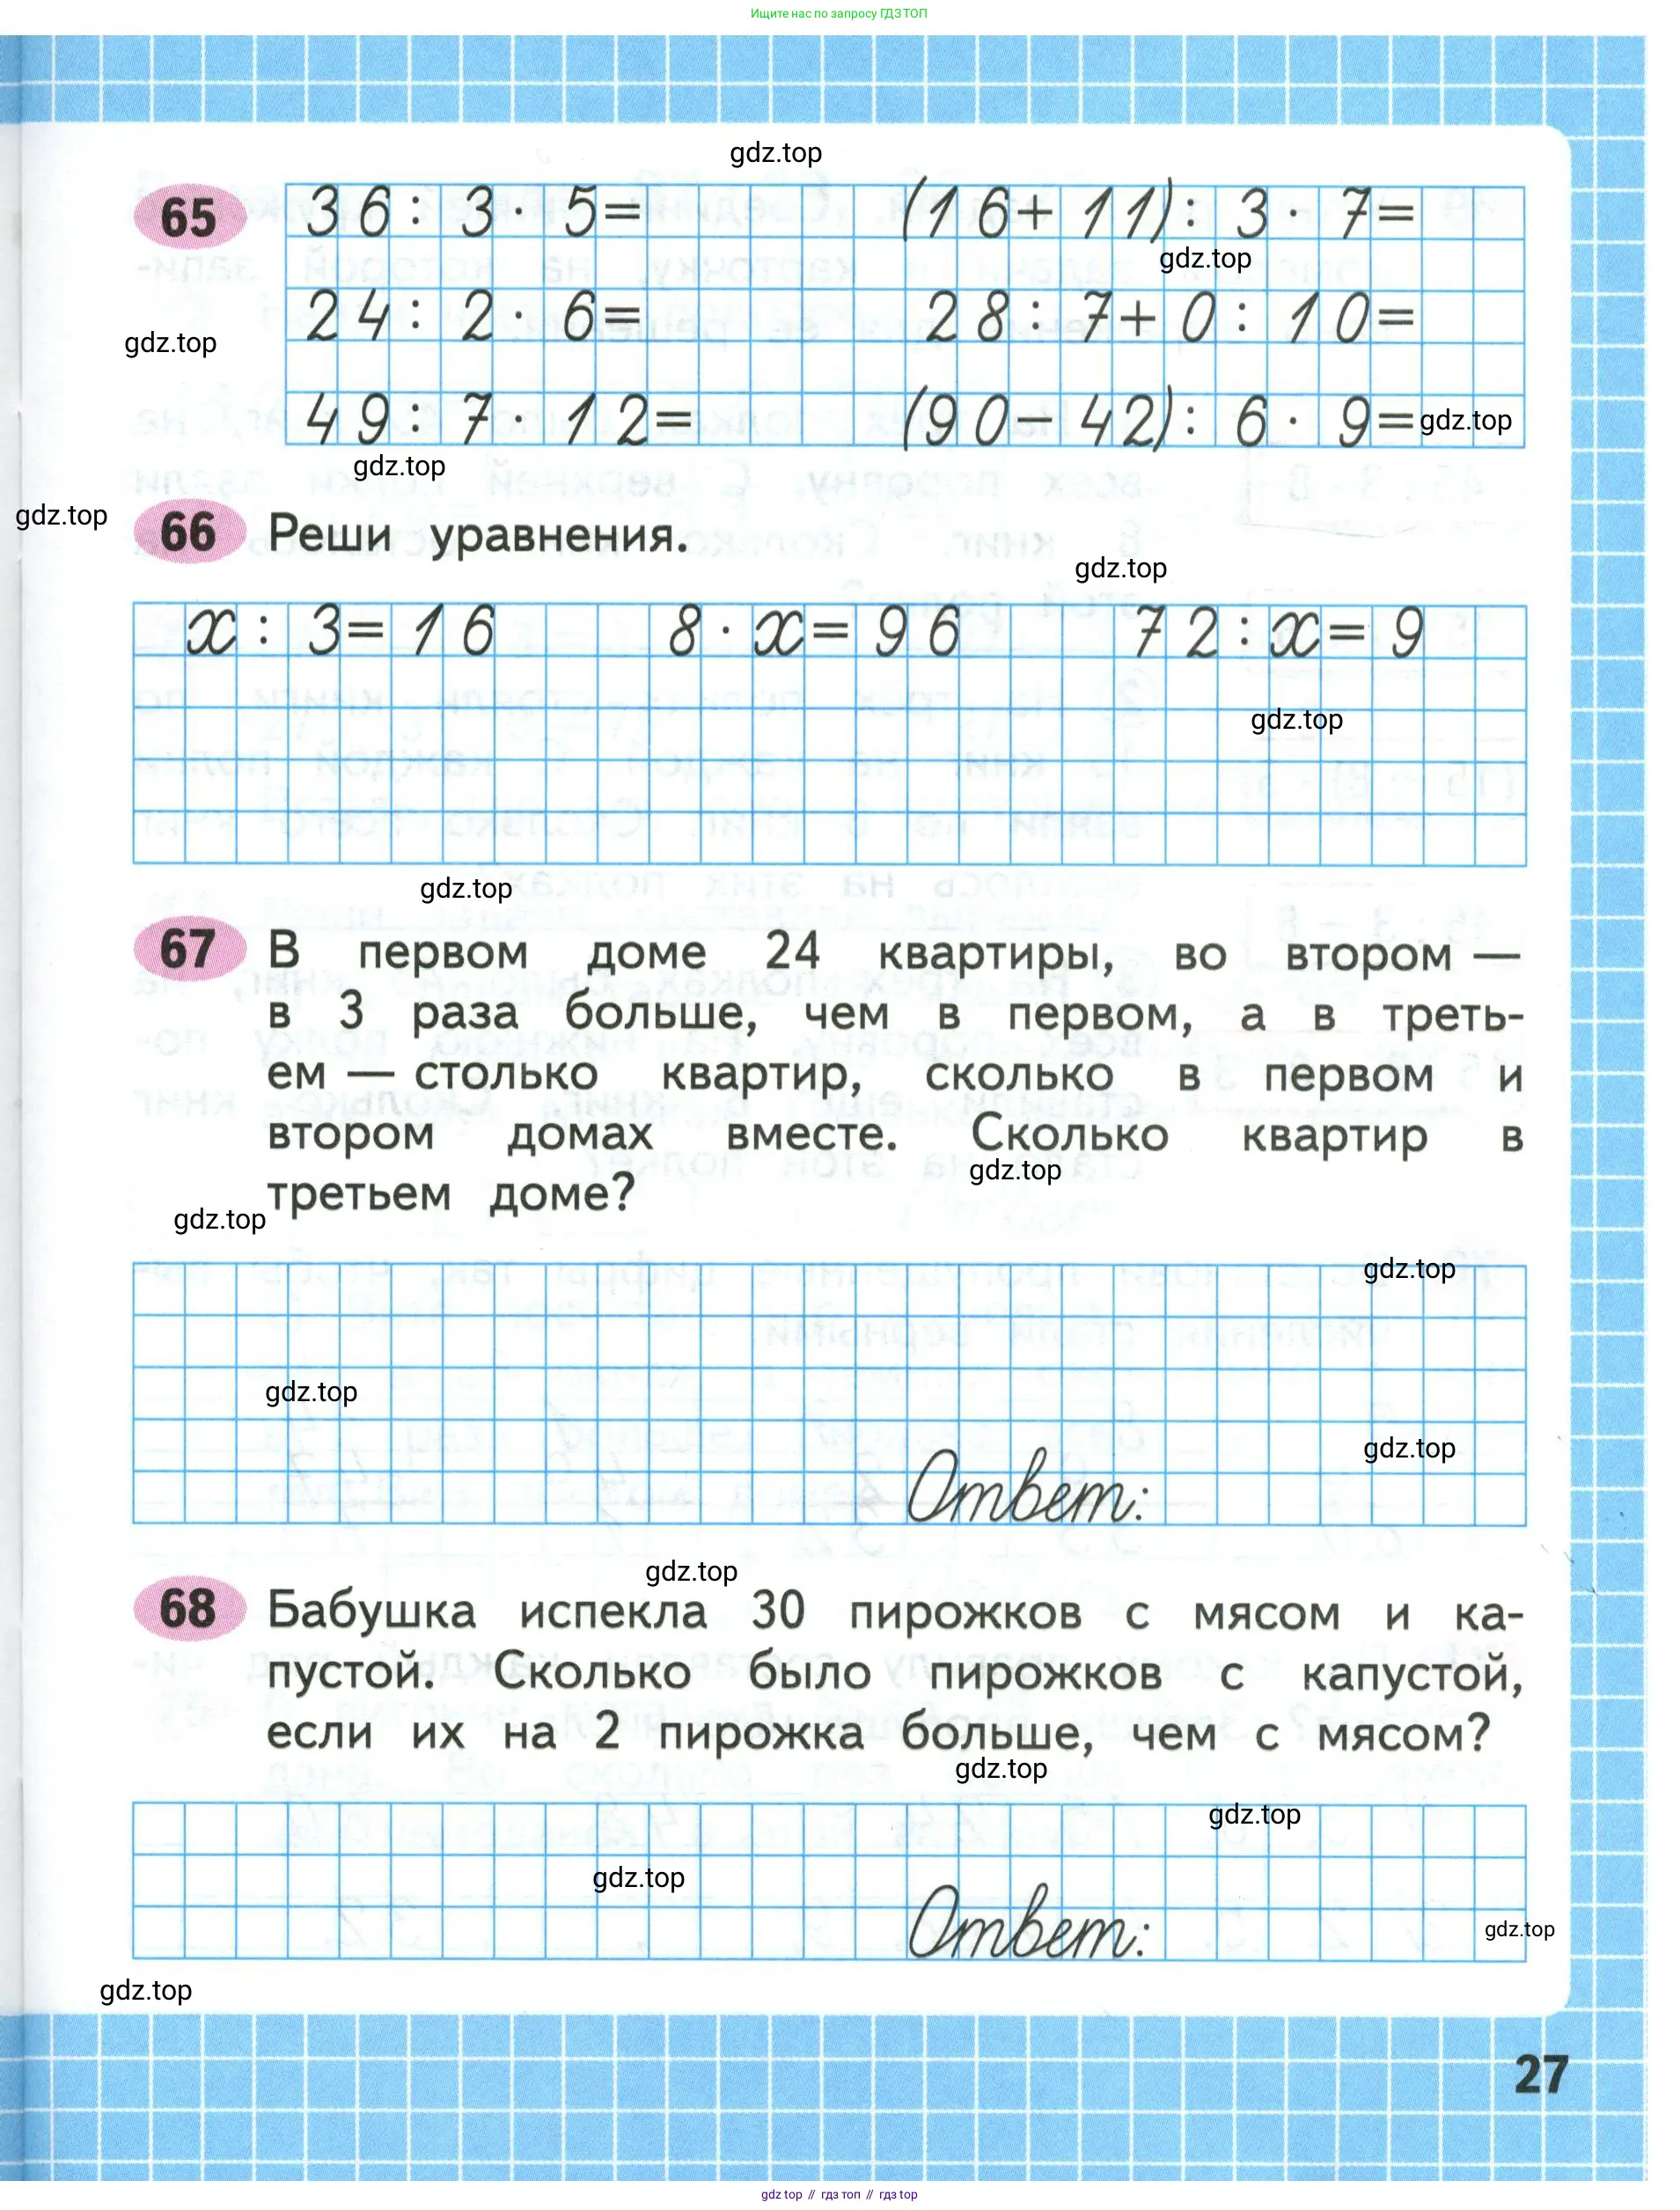 Ищите нас по запросу ГДЗ ТОП
gdz.top
65 36 : 3 · 5 = (16 + 11) : 3 · 7 =
gdz.top
24 : 2 · 6 = 28 : 7 + 0 : 10 =
gdz.top
49 : 7 · 12 = (90 42) : 6 · 9 = gdz.top
gdz.top
gdz.top
66 Реши уравнения.
gdz.top
x : 3 = 16 8 · x = 96 72 : x = 9
gdz.top
gdz.top
67 В первом доме 24 квартиры, во втором —
в 3 раза больше, чем в первом, а в треть-
ем — столько квартир, сколько в первом и
втором домах вместе. Сколько квартир в
gdz.top
третьем доме?
gdz.top
gdz.top
gdz.top
gdz.top
Ответ:
gdz.top
68 Бабушка испекла 30 пирожков с мясом и ка-
пустой. Сколько было пирожков с капустой,
если их на 2 пирожка больше, чем с мясом?
gdz.top
gdz.top
gdz.top
Ответ:
gdz.top
gdz.top
27
gdz top // гдз топ // гдз top